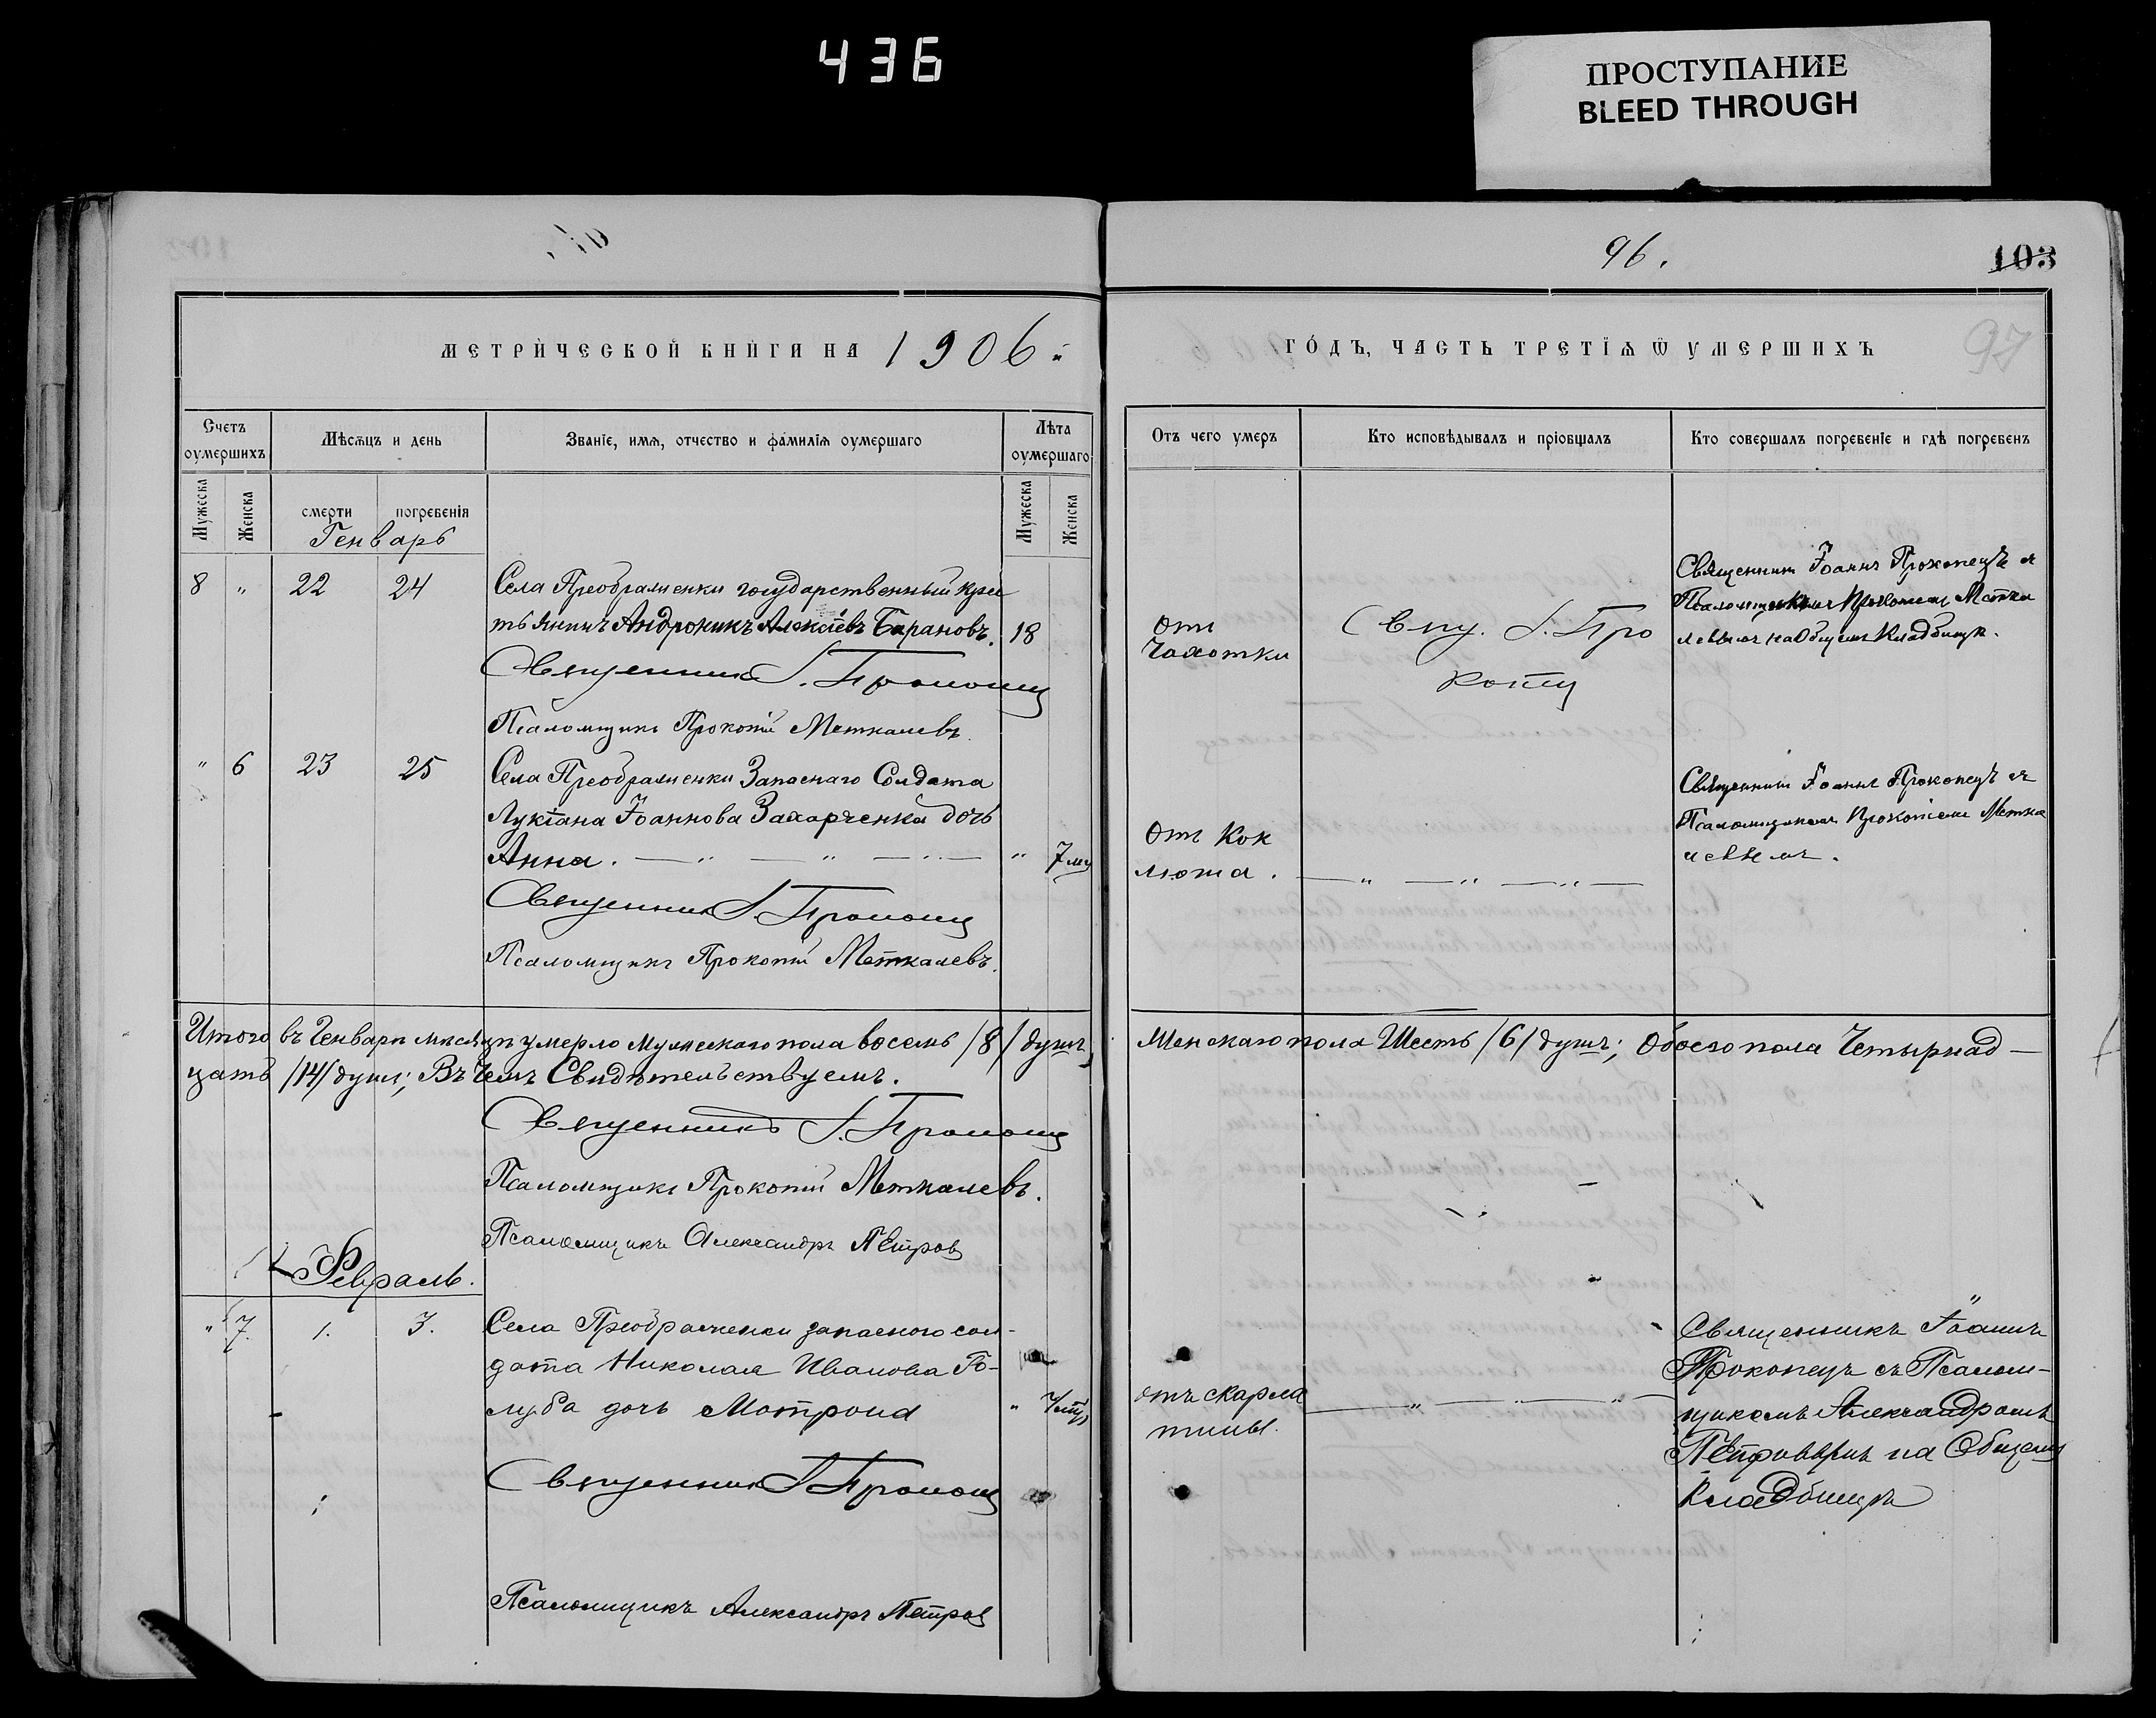 436
ПРОСТУПАНИЕ
BLEED THROUGH
96.
103
97
МЕТРИЧЕСКОЙ КНИГИ НА 1906.
ГОДЪ, ЧАСТЬ ТРЕТІѦ Ѿ УМЕРШИХЪ
Счетъ оумершихъ
Мѣсѧцъ и день
Званіе, имѧ, отчество и фамиліѧ оумершаго
Лѣта оумершаго
Отъ чего умеръ
Кто исповѣдывалъ и пріобщалъ
Кто совершалъ погребеніе и гдѣ погребенъ
Мужеска
Женска
смерти
погребенія
Мужеска
Женска
Генварь
8 " 22 24 Села Преображенки государственный крес
тьянинъ Андроникъ Алексіевъ Барановъ. 18
Священникъ І. Прокопец
Псаломщикъ Прокопій Меткалевъ
отъ
чахотки
Свщ. І. Про
копец
Священник Іоаннъ Прокопецъ съ
Псаломщикомъ ПрокопіемМетка
левымъ на Общемъ Кладбищѣ.
" 6 23 25 Села Преображенки Запаснаго Солдата
Лукіана Іоаннова Захарченка дочь
Анна. — " — " — " — " 7 мц
Священник І. Прокопец
Псаломщикъ Прокопій Меткалевъ.
Отъ Кок
люша. — " — " — " —
Священник Іоаннъ Прокопецъ съ
Псаломщикомъ Прокопіем Метка
левымъ.
Итого въ Генварѣ мѣсяцѣ умерло мужескаго пола восемь /8/ душъ,
Женскаго пола Шесть /6/ душъ; Обоего пола Четырнад—
цать /14/ душъ; Въ Чемъ Свидѣтельствуемъ.
Священникъ І. Прокопец
Псаломщикъ Прокопій Меткалевъ.
Псаломщикъ Александръ Петров
Февраль.
" 7. 1. 3. Села Преображенки запасного сол-
дата Николая Иванова Го-
луба дочь Мотрона "
Священник І Прокопец
Псаломщикъ Александръ Петров
отъ скарла
тины.
— " — " — " —
Священникъ Іоаннъ
Прокопецъ съ Псалом-
щикомъ Александромъ
Петровымъ на Общемъ
Кладбищѣ